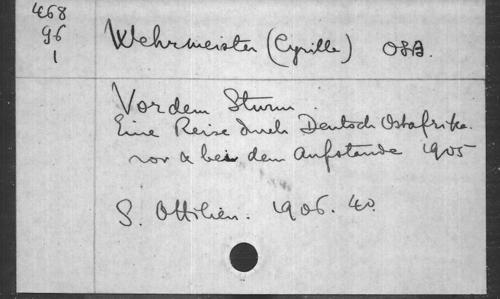 468
96
1
Wehrmeister (Cyrille) OSB.
Vor dem Sturm.
Eine Reise durch Deutsch Ostafrika
vor & bei dem Aufstande 1905
S. Ottilien. 1906. 40.